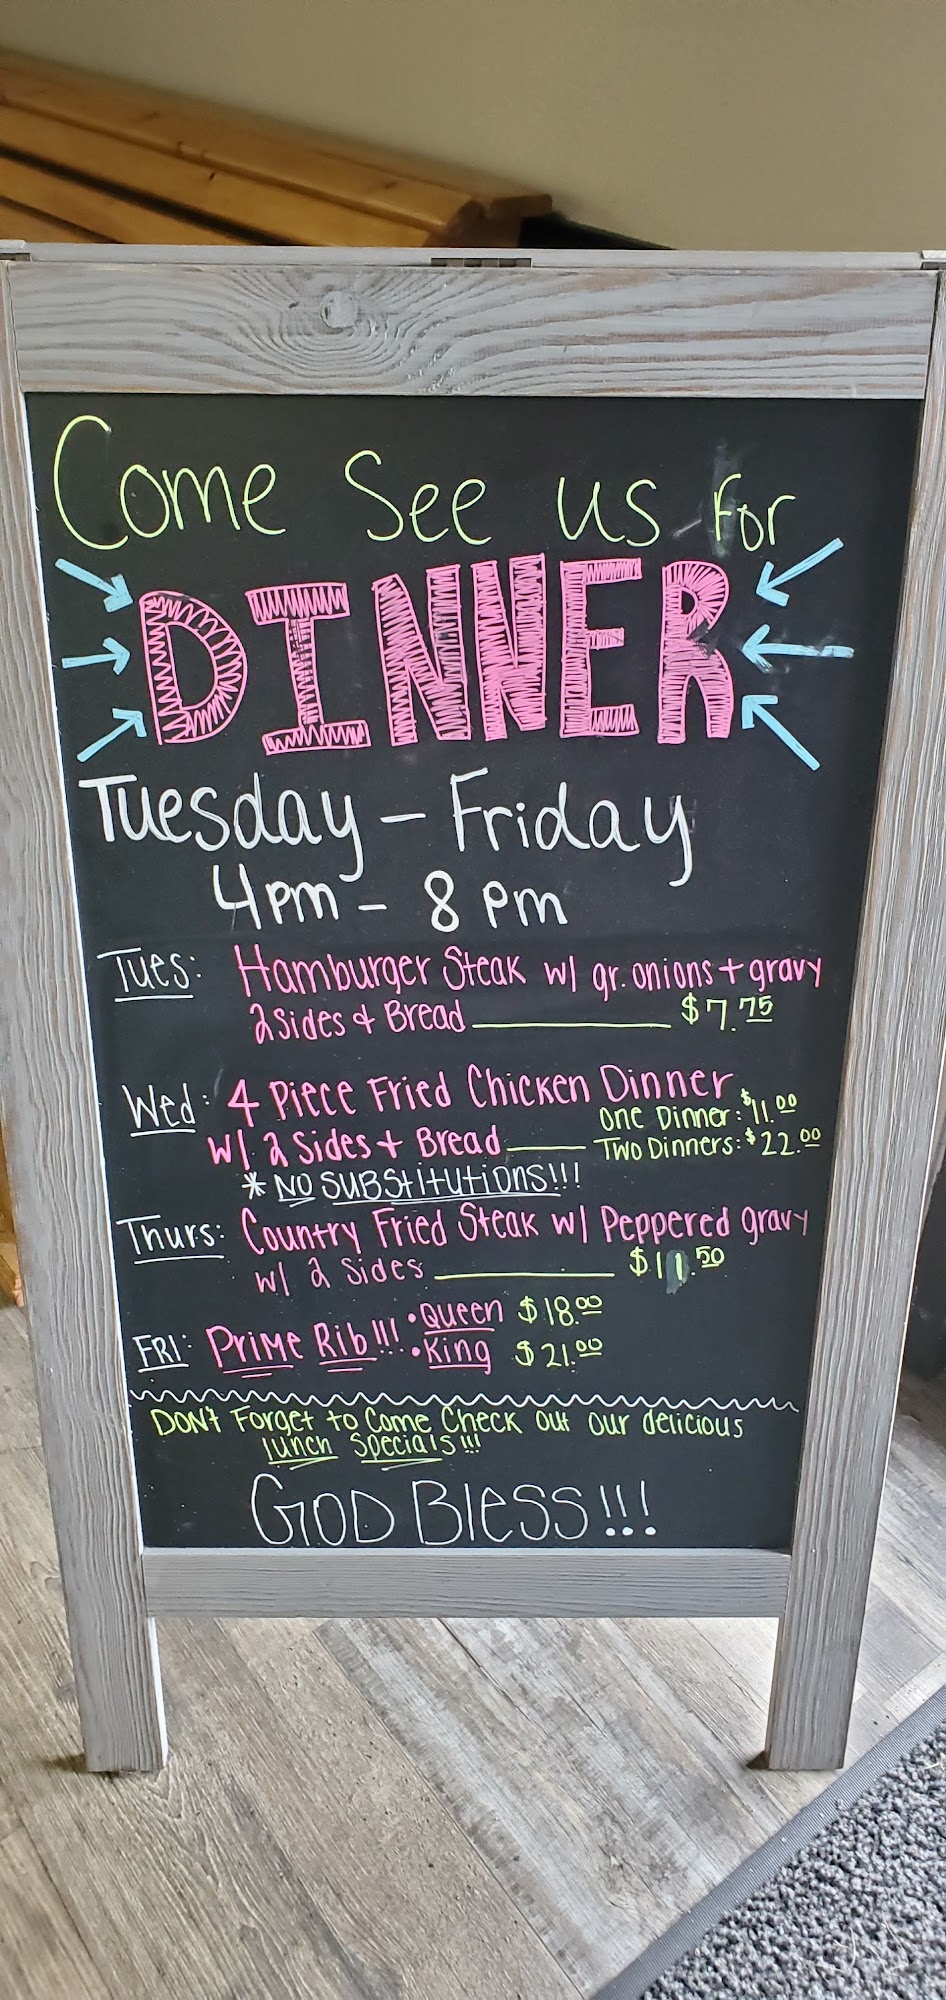 Come See us For
DINNER
Tuesday – Friday
4pm – 8pm
Tues: Hamburger Steak w/ gr. onions + gravy
2 Sides & Bread $7.75
Wed: 4 Piece Fried Chicken Dinner
One Dinner: $11.00
w/ 2 Sides + Bread Two Dinners: $22.00
* NO SUBSTITUTIONS!!!
Thurs: Country Fried Steak w/ Peppered gravy
w/ 2 Sides $11.50
FRI: Prime Rib!!! • Queen $18.00
• King $21.00
DON't Forget to Come Check out our delicious
lunch Specials!!!
GOD Bless!!!